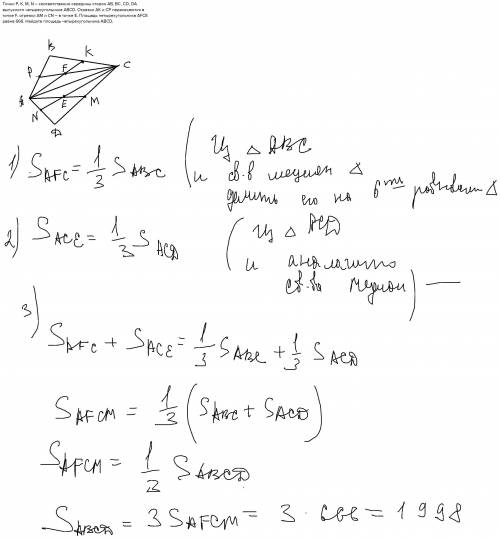 Точки Р, К, М, N – соответственно середины сторон АВ, ВС, CD, DA
выпуклого четырехугольника ABCD. Отрезки АК и СР пересекаются в
точке F, отрезки АМ и CN – в точке Е. Площадь четырехугольника AFCE
равна 666. Найдите площадь четырехугольника ABCD.
B
K
P
F
C
A
N
E
M
D
1) S AFC = 1/3 S ABC ( Из △ ABC
и св-в медиан △
делить его на 6 равновел △
2) S ACE = 1/3 S ACD ( Из △ ACD
и аналогично
св-ва медиан ) —
3)
S AFC + S ACE = 1/3 S ABC + 1/3 S ACD
S AFCM = 1/3 ( S ABC + S ACD )
S AFCM = 1/3 S ABCD
S ABCD = 3 S AFCM = 3 · 666 = 1998